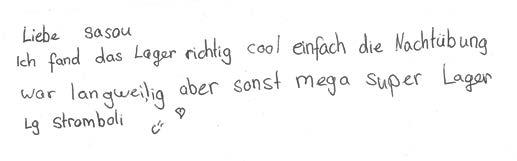 Liebe Sasou
Ich fand das Lager richtig cool einfach die Nachtübung
war langweilig aber sonst mega super Lager
Lg Stromboli